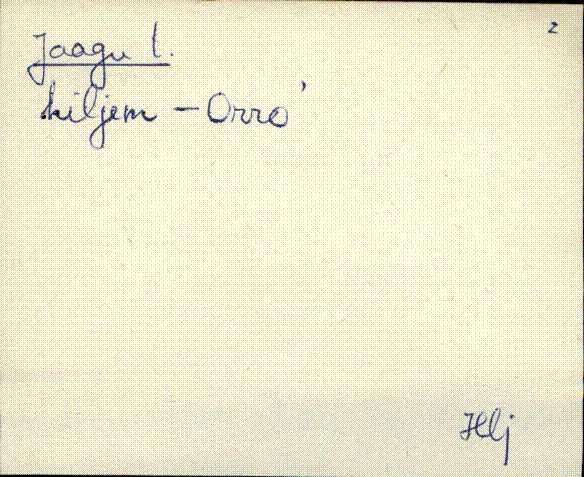 2
Jaagu l.
hiljem - Orro'
Hlj